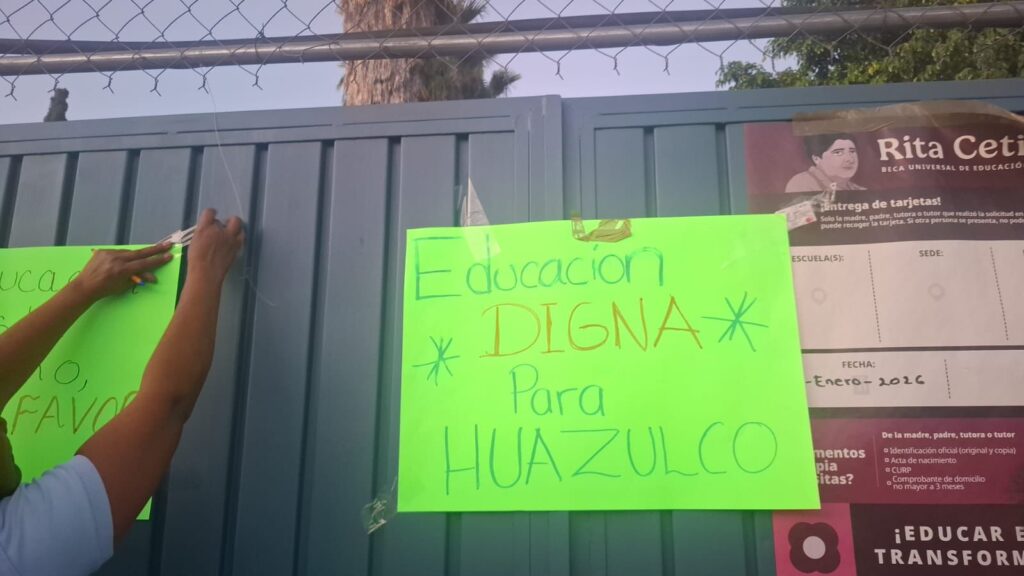 FAVO
Educación
DIGNA
Para
HUAZULCO
Rita Ceti
BECA UNIVERSAL DE EDUCACIÓ
¡Entrega de tarjetas!
Solo la madre, padre, tutora o tutor que realizó la solicitud en
puede recoger la tarjeta. Si otra persona se presenta, no pod
ESCUELA(S):
SEDE:
FECHA:
-Enero-2026
De la madre, padre, tutora o tutor
Identificación oficial (original y copia)
Acta de nacimiento
CURP
Comprobante de domicilio
no mayor a 3 meses
mentos
pia
sitas?
¡EDUCAR E
TRANSFORM